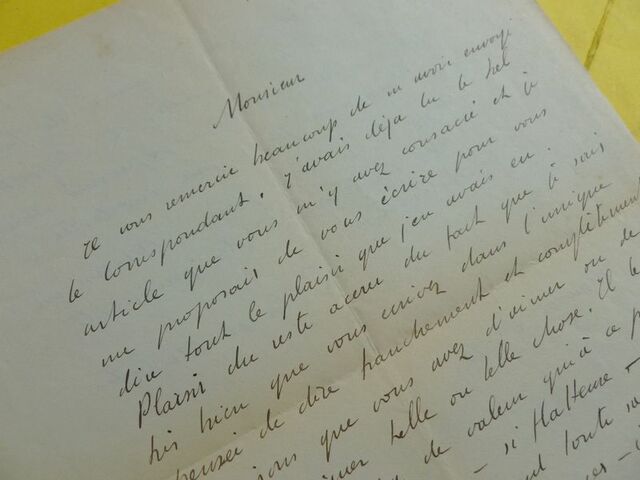 Monsieur
Je vous remercie beaucoup de m'avoir envoyé
le Correspondant. J'avais déjà lu le bel
article que vous m'y avez consacré et je
me proposais de vous écrire pour vous
dire tout le plaisir que j'en avais eu.
Plaisir du reste accru du fait que je sais
très bien que vous écrivez dans l'unique
pensée de dire franchement et complètement
que vous avez d'aimer ou de
telle ou telle chose. Il
de valeur qu'à ce
si flatteuse
tout